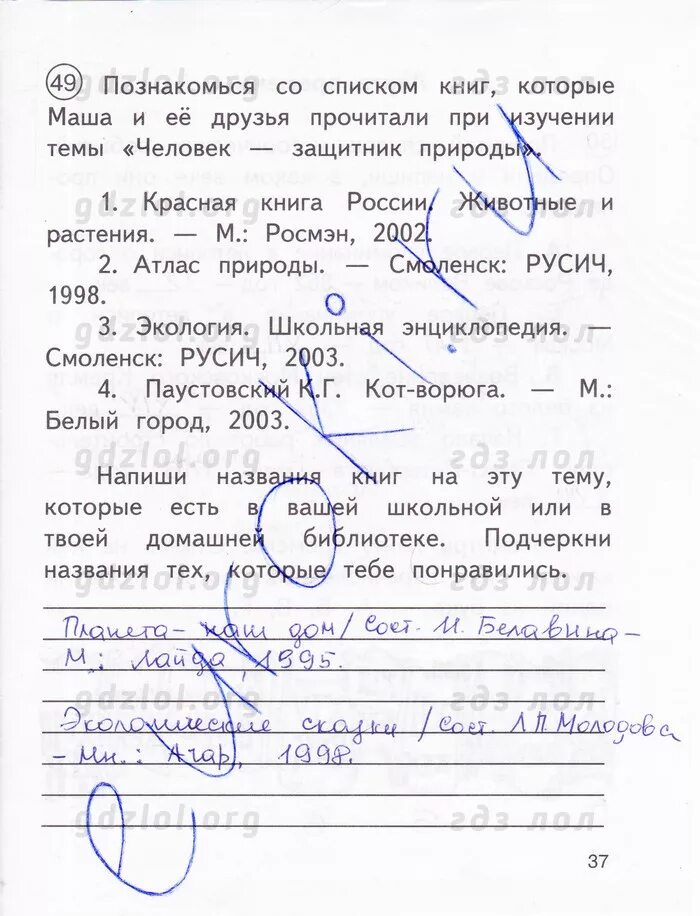 49 Познакомься со списком книг, которые
Маша и её друзья прочитали при изучении
темы «Человек — защитник природы».
1. Красная книга России. Животные и
растения. — М.: Росмэн, 2002.
2. Атлас природы. — Смоленск: РУСИЧ,
1998.
3. Экология. Школьная энциклопедия. —
Смоленск: РУСИЧ, 2003.
4. Паустовский К.Г. Кот-ворюга. — М.:
Белый город, 2003.
gdzlol.org гдз лол
Напиши названия книг на эту тему,
которые есть в вашей школьной или в
твоей домашней библиотеке. Подчеркни
названия тех, которые тебе понравились.
Планета - наш дом / Сост. И. Белавина -
М.: Лайда, 1995.
gdzlol.org гдз лол
Экологические сказки / Сост. Л.П. Молодова
- Мн.: Агар, 1998.
gdzlol.org гдз лол
37